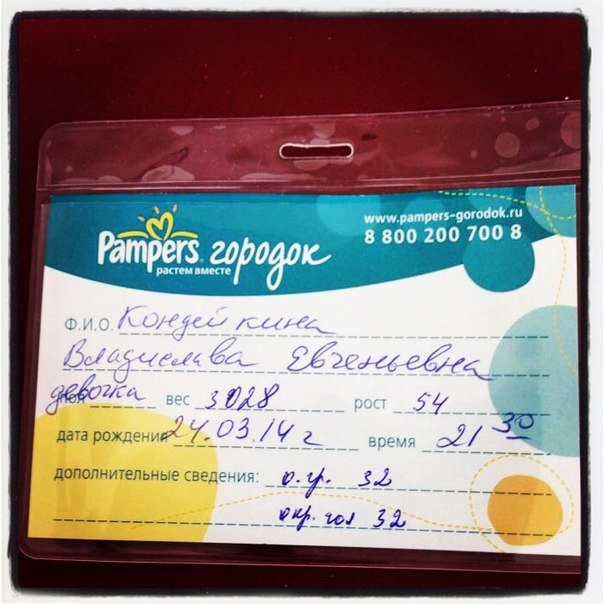 www.pampers-gorodok.ru
8 800 200 700 8
Pampers городок
растем вместе
Ф.И.О. Кондейкина
Владислава Евгеньевна
пол девочка вес 3028 рост 54
дата рождения 24.03.14 г время 21 30
дополнительные сведения: о.гр. 32
окр. гол 32